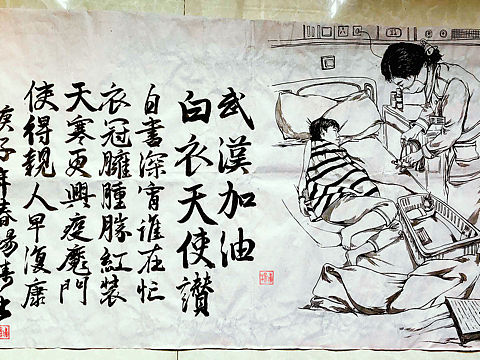 武漢加油
白衣天使讃
白書深宵誰在忙
衣冠臃腫朦紅装
天寒更興疫魔鬥
使得親人早復康
庚子年春